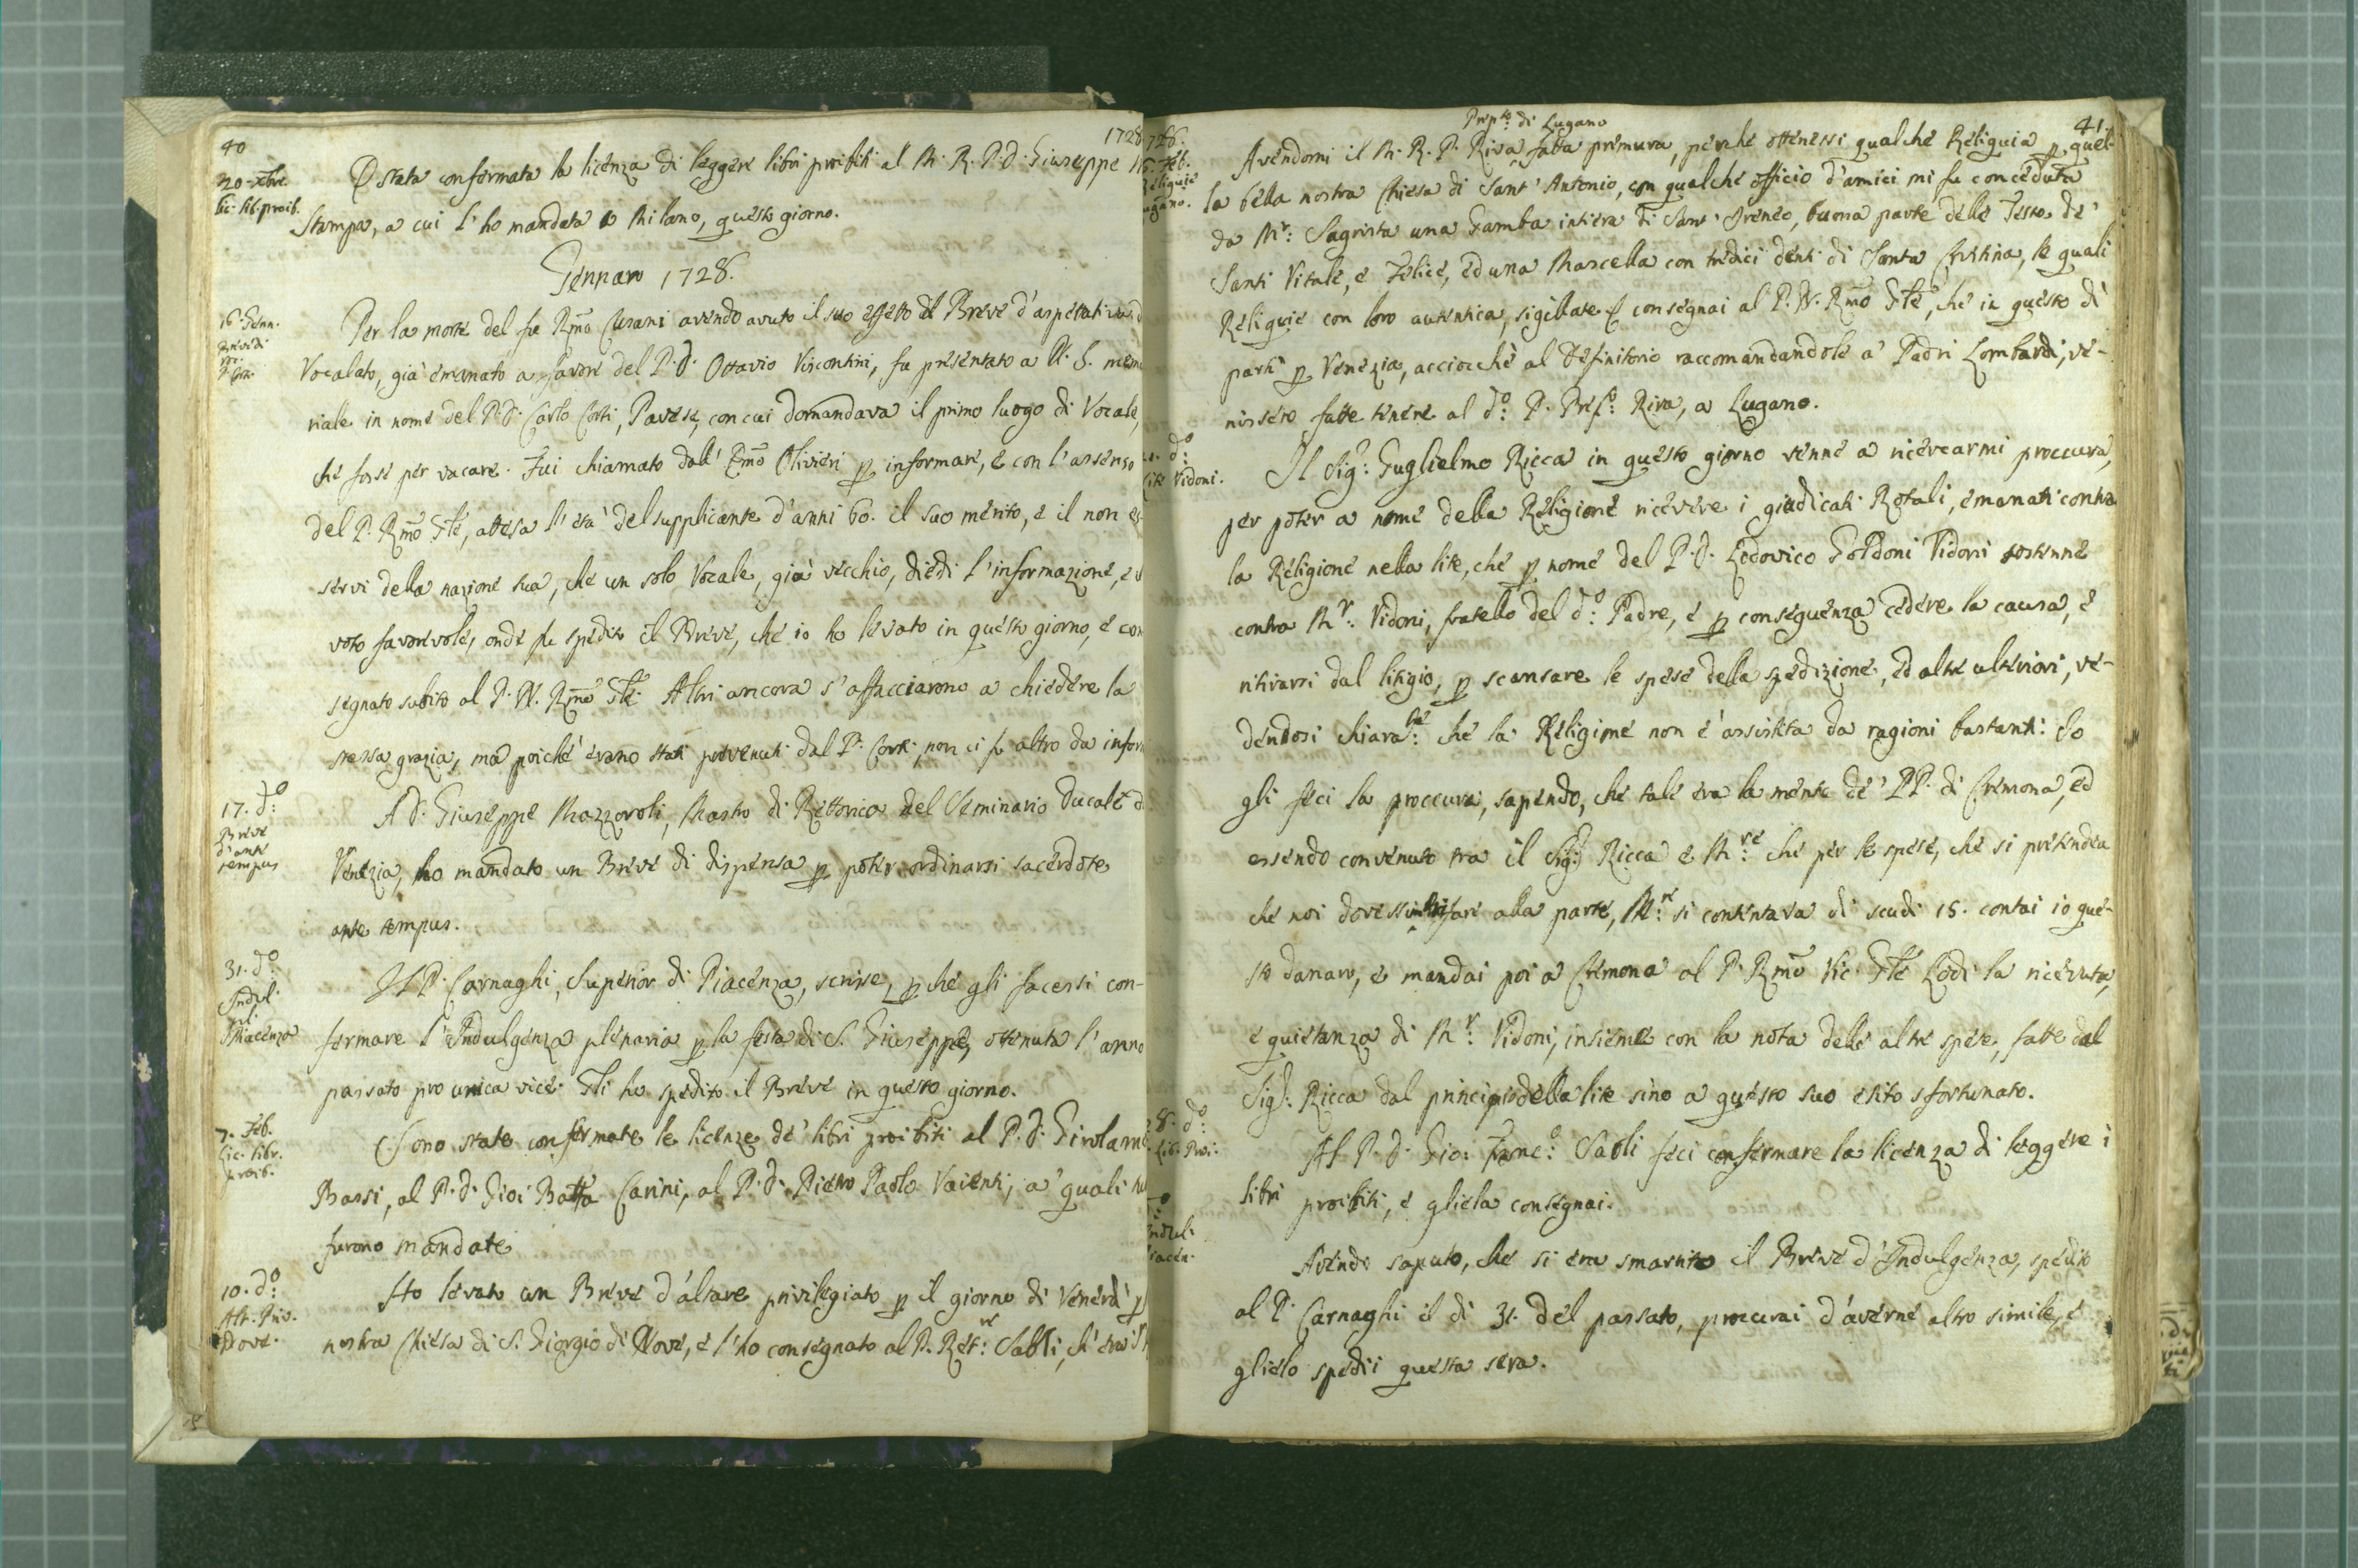 40
1728
20. Xbre.
Lic. lib. proib.
È stata confermata la licenza di leggere libri proibiti al M. R. P. D. Giuseppe
Stampa, a cui l'ho mandata a Milano, questo giorno.
Gennaro 1728.
16. Genn.
Per la morte del fu Rmo Cusani avendo avuto il suo effetto il Breve d'aspettativa
Vocalato, già emanato a favore del P. D. Ottavio Visconti, fu presentato a N. S. memo
riale in nome del P. D. Carlo Corti, Pavese, con cui domandava il primo luogo di Vocale,
che fosse per vacare. Fui chiamato dall' Emo Olivieri p informare, e con l'assenso
del P. Rmo Gle, attesa l'età del supplicante d'anni 60. il suo merito, e il non es-
servi della nazione sua, che un solo Vocale, già vecchio, diedi l'informazione, e
voto favorevole, onde fu spedito il Breve, che io ho levato in questo giorno, e con
segnato subito al P. N. Rmo Gle. Altri ancora s'affacciarono a chiedere la
stessa grazia, ma poiché erano stati prevenuti dal P. Corti, non ci fu altro da infor
17. do:
Breve
d'ante
tempus
A D. Giuseppe Mazzoroli, Mastro di Rettorica del Seminario Ducale d
Venezia, ho mandato un Breve di dispensa p poter ordinarsi sacerdote
ante tempus.
31. do:
Indul.
pel
Piacenza
Il P. Carnaghi, Superior di Piacenza, scrisse, pché gli facessi con-
fermare l'Indulgenza plenaria p la festa di S. Giuseppe, ottenuta l'anno
passato pro unica vice. Gli ho spedito il Breve in questo giorno.
7. Feb.
Lic. libr.
proib.
Sono state confermate le licenze de' libri proibiti al P. D. Girolamo
Bassi, al P. D. Gio: Batta Carini, al P. D. Pietro Paolo Vaienti, a' quali
furono mandate
10. do:
Alt. Priv.
Nove.
Ho levato un Breve d'altare privilegiato p il giorno di Venerdì p
nostra Chiesa di S. Giorgio di Nove, e l'ho consegnato al P. Ret:re Saoli, ch'era
41
728.
16. Feb.
Reliquie
Lugano.
Prep:to di Lugano
Avendomi il M. R. P. Riva fatta premura, perché ottenessi qualche Reliquia p quel-
la bella nostra Chiesa di Sant'Antonio, con qualche officio d'amici mi fu conceduta
da Mr: Sagrista una Gamba intiera di Sant'Ireneo, buona parte delle Teste de'
Santi Vitale, e Felice, ed una Mascella con tredici denti di Santa Cristina, le quali
Reliquie con loro autentica, sigillate consegnai al P. N. Rmo Gle, che in questo dì
partì p Venezia, acciocchè al Definitorio raccomandandole a' Padri Lombardi, ve-
nissero fatte tenere al do: P. Prefo: Riva, a Lugano.
do:
Lite Vidoni.
Il Sigr: Guglielmo Ricca in questo giorno venne a ricercarmi proccura,
per poter a nome della Religione ricevere i giudicati Rotali, emanati contra
la Religione nella lite, che p nome del P. D. Lodovico Goldoni Vidoni sostenne
contra Mr: Vidoni, fratello del do: Padre, e p conseguenza cedere la causa, e
ritirarsi dal litigio, p scansare le spese della spedizione, ed altre ulteriori, ve-
dendosi chiara:te che la Religione non è assistita da ragioni bastanti: Io
gli feci la proccura, sapendo, che tale era la mente de' PP. di Cremona, ed
essendo convenuto tra il Sigr: Ricca e M:re che per le spese, che si pretendea
che noi dovessimo rifare alla parte, M:re si contentava di scudi 15. contai io que-
sto danaro, e mandai poi a Cremona al P. Rmo Vic. Gle Lodi la ricevuta,
e quietanza di Mr: Vidoni, insieme con la nota delle altre spese, fatte dal
Sigr: Ricca dal principio della lite sino a questo suo esito sfortunato.
28. do:
Lib. Proi.
Al P. D. Gio: Franc:o Saoli feci confermare la licenza di leggere i
libri proibiti, e gliela consegnai.
do
Indul.
Piacen.
Avendo saputo, che si era smarrito il Breve d'Indulgenza, spedito
al P. Carnaghi il dì 31. del passato, proccurai d'averne altro simile, e
glielo spedii questa sera.